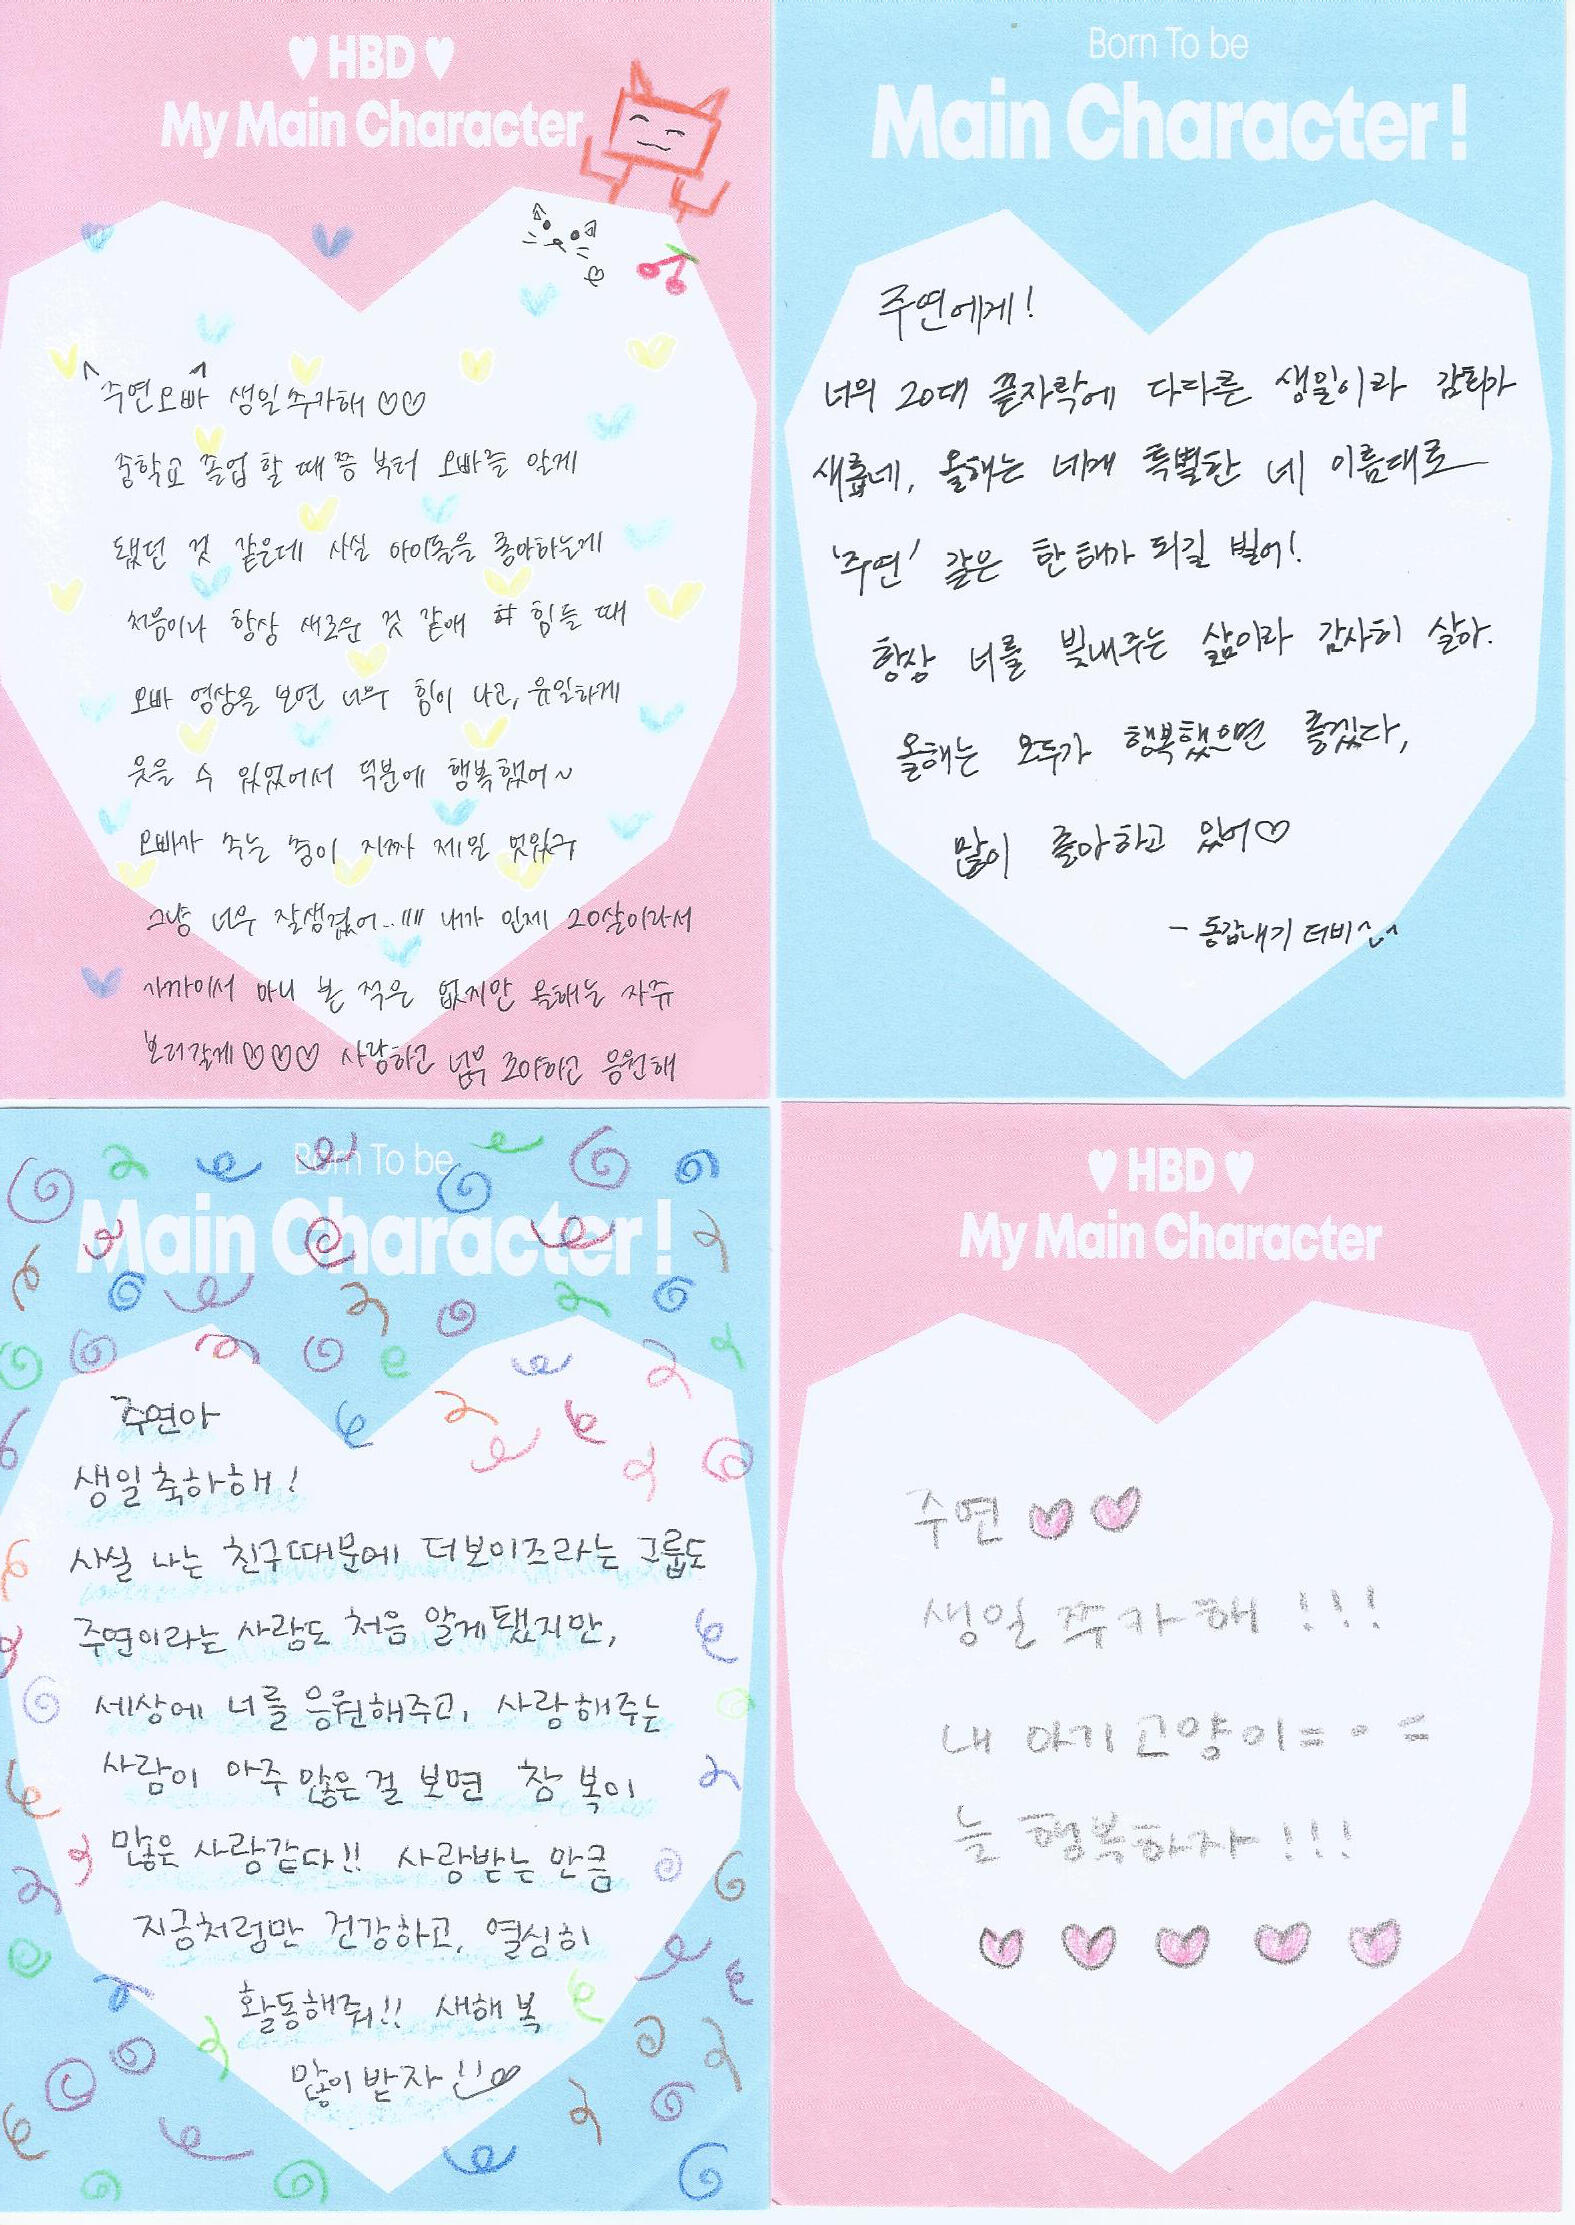 ♥ HBD ♥
My Main Character
주연오빠 생일추카해♡♡
중학교 졸업 할 때쯤 부터 오빠를 알게
됐던 것 같은데 사실 아이돌을 좋아하는게
처음이나 항상 새로운 것 같애 ㅎㅎ 힘들 때
오빠 영상을 보면 너무 힘이 나고, 유일하게
웃을 수 있었어서 덕분에 행복했어~
오빠가 추는 춤이 진짜 제일 멋있구
그냥 너무 잘생겼어..!!!! 내가 인제 20살이라서
가까이서 마니 본 적은 없지만 올해는 자쥬
보러갈게♡♡♡ 사랑하고 넘무 조아하고 응원해
Born To be
Main Character!
주연에게!
너의 20대 끝자락에 다다른 생일이라 감회가
새롭네, 올해는 네게 특별한 네 이름대로
'주연' 같은 한 해가 되길 빌어!
항상 너를 빛내주는 삶이라 감사히 살아.
올해는 모두가 행복했으면 좋겠다,
많이 좋아하고 있어♡
- 동갑내기 더비^~^
Born To be
Main Character!
주연아
생일축하해!
사실 나는 친구때문에 더보이즈라는 그룹도
주연이라는 사람도 처음 알게됐지만,
세상에 너를 응원해주고, 사랑해주는
사람이 아주 많은걸 보면 참 복이
많은 사람같다!! 사랑받는 만큼
지금처럼만 건강하고, 열심히
활동해줘!! 새해 복
많이 받자!!♡
♥ HBD ♥
My Main Character
주연♡♡
생일 쭈카해!!!
내 아기고양이=•=
늘 행복하자!!!
♡♡♡♡♡